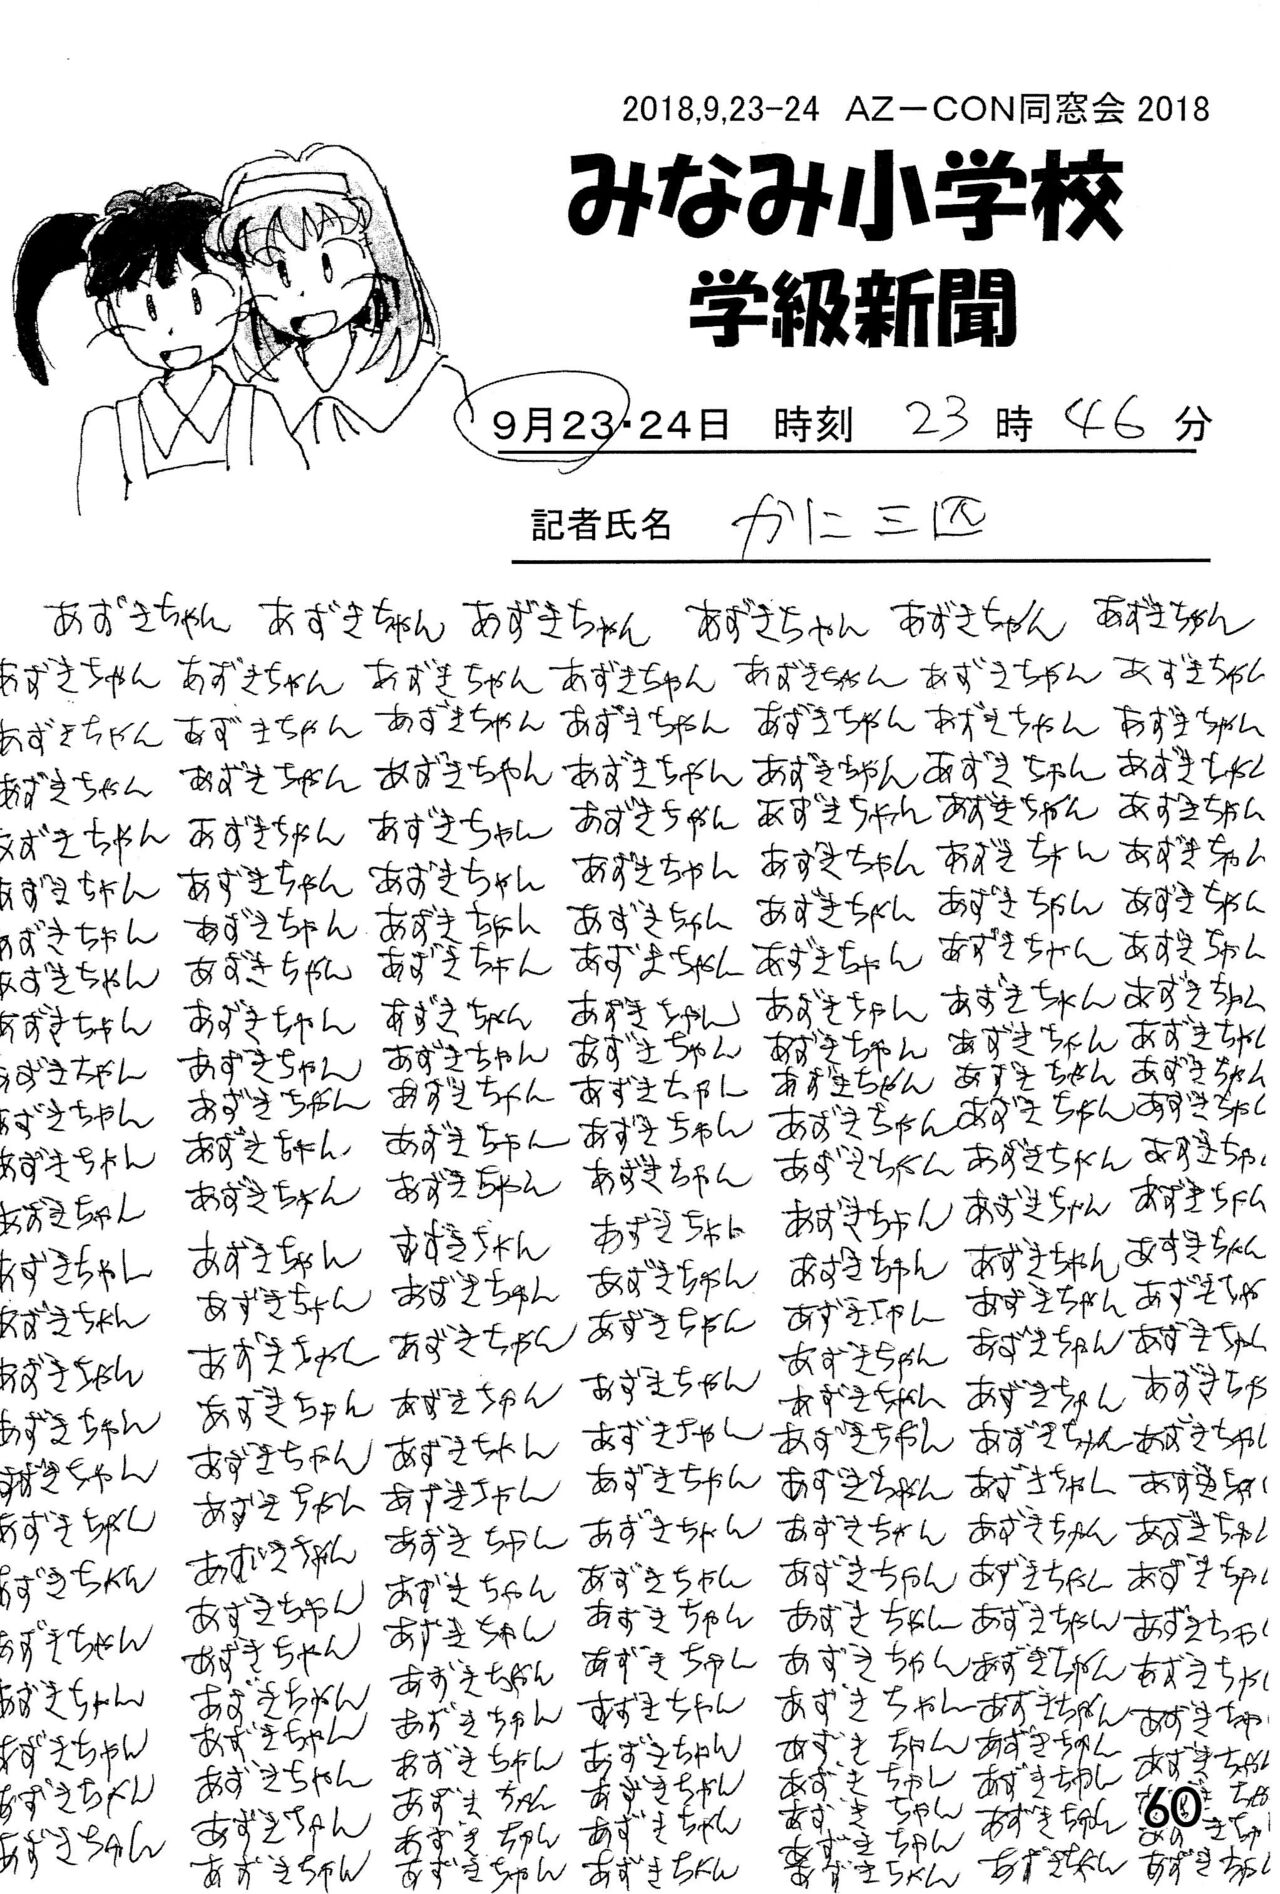 2018,9,23-24 AZーCON同窓会 2018
みなみ小学校
学級新聞
9月23・24日 時刻 23 時 46 分
記者氏名 かに三匹
あずきちゃん あずきちゃん あずきちゃん あずきちゃん あずきちゃん あずきちゃん
あずきちゃん あずきちゃん あずきちゃん あずきちゃん あずきちゃん あずきちゃん あずきちゃん
あずきちゃん あずきちゃん あずきちゃん あずきちゃん あずきちゃん あずきちゃん あずきちゃん
あずきちゃん あずきちゃん あずきちゃん あずきちゃん あずきちゃん あずきちゃん あずきちゃん
あずきちゃん あずきちゃん あずきちゃん あずきちゃん あずきちゃん あずきちゃん あずきちゃん
あずきちゃん あずきちゃん あずきちゃん あずきちゃん あずきちゃん あずきちゃん あずきちゃん
あずきちゃん あずきちゃん あずきちゃん あずきちゃん あずきちゃん あずきちゃん あずきちゃん
あずきちゃん あずきちゃん あずきちゃん あずきちゃん あずきちゃん あずきちゃん あずきちゃん
あずきちゃん あずきちゃん あずきちゃん あずきちゃん あずきちゃん あずきちゃん あずきちゃん
あずきちゃん あずきちゃん あずきちゃん あずきちゃん あずきちゃん あずきちゃん あずきちゃん
あずきちゃん あずきちゃん あずきちゃん あずきちゃん あずきちゃん あずきちゃん あずきちゃん
あずきちゃん あずきちゃん あずきちゃん あずきちゃん あずきちゃん あずきちゃん あずきちゃん
あずきちゃん あずきちゃん あずきちゃん あずきちゃん あずきちゃん あずきちゃん あずきちゃん
あずきちゃん あずきちゃん あずきちゃん あずきちゃん あずきちゃん あずきちゃん あずきちゃん
あずきちゃん あずきちゃん あずきちゃん あずきちゃん あずきちゃん あずきちゃん あずきちゃん
あずきちゃん あずきちゃん あずきちゃん あずきちゃん あずきちゃん あずきちゃん あずきちゃん
あずきちゃん あずきちゃん あずきちゃん あずきちゃん あずきちゃん あずきちゃん あずきちゃん
あずきちゃん あずきちゃん あずきちゃん あずきちゃん あずきちゃん あずきちゃん あずきちゃん
あずきちゃん あずきちゃん あずきちゃん あずきちゃん あずきちゃん あずきちゃん あずきちゃん
あずきちゃん あずきちゃん あずきちゃん あずきちゃん あずきちゃん あずきちゃん あずきちゃん
あずきちゃん あずきちゃん あずきちゃん あずきちゃん あずきちゃん あずきちゃん あずきちゃん
あずきちゃん あずきちゃん あずきちゃん あずきちゃん あずきちゃん あずきちゃん あずきちゃん
あずきちゃん あずきちゃん あずきちゃん あずきちゃん あずきちゃん あずきちゃん あずきちゃん
あずきちゃん あずきちゃん あずきちゃん あずきちゃん あずきちゃん あずきちゃん あずきちゃん
あずきちゃん あずきちゃん あずきちゃん あずきちゃん あずきちゃん あずきちゃん あずきちゃん
あずきちゃん あずきちゃん あずきちゃん あずきちゃん あずきちゃん あずきちゃん
あずきちゃん あずきちゃん あずきちゃん あずきちゃん あずきちゃん あずきちゃん
60